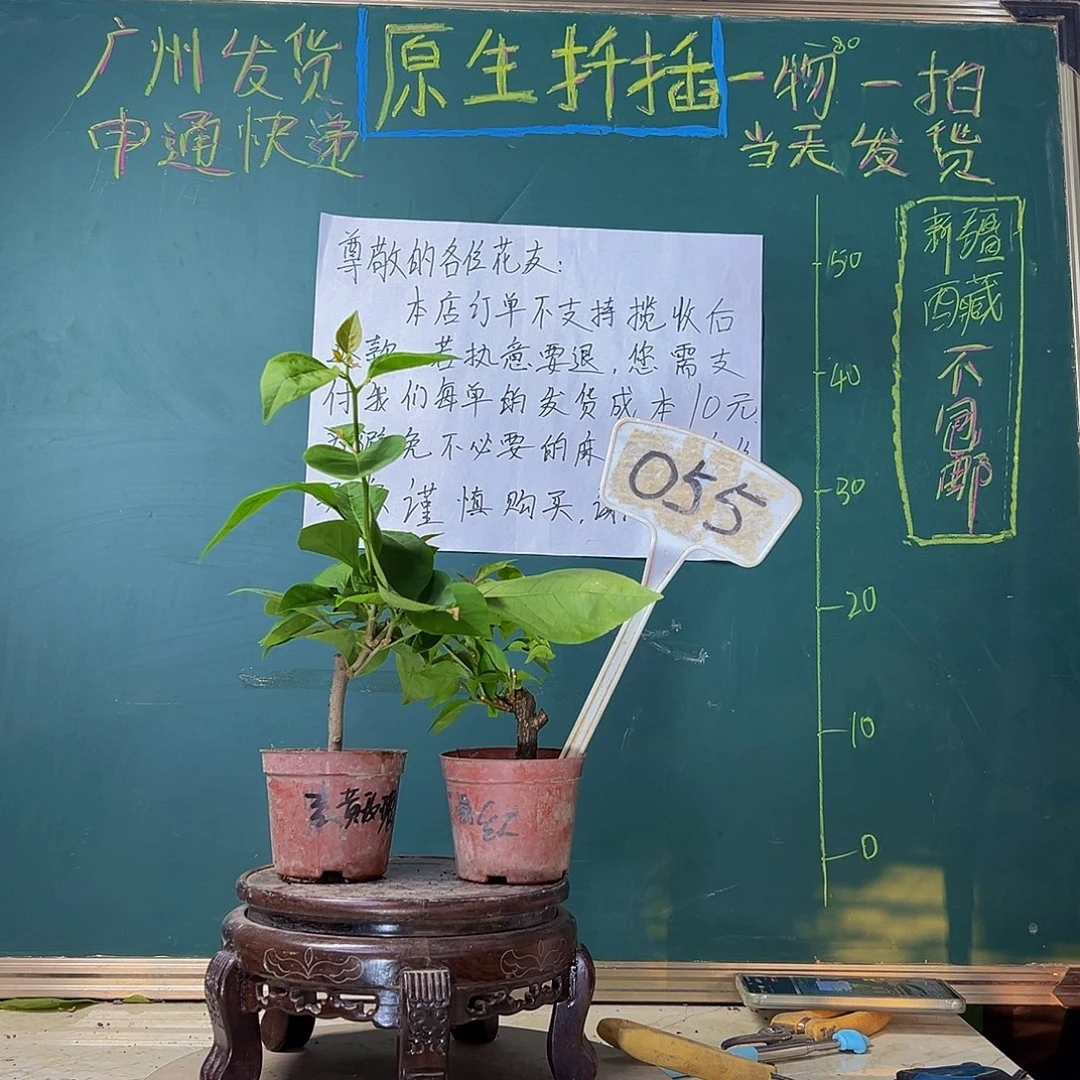 广州发货
申通快递
原生扦插
一物一拍
当天发货
新疆
西藏
不包邮
50
40
30
20
10
0
尊敬的各位花友:
本店订单不支持揽收后
款 若执意要退,您需支
付我们每单的发货成本10元
避免不必要的麻
谨慎购买,
055